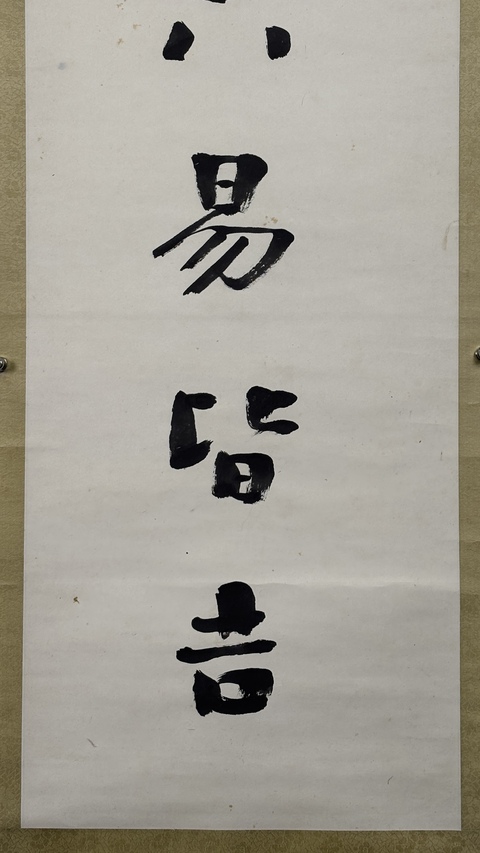 易皆吉